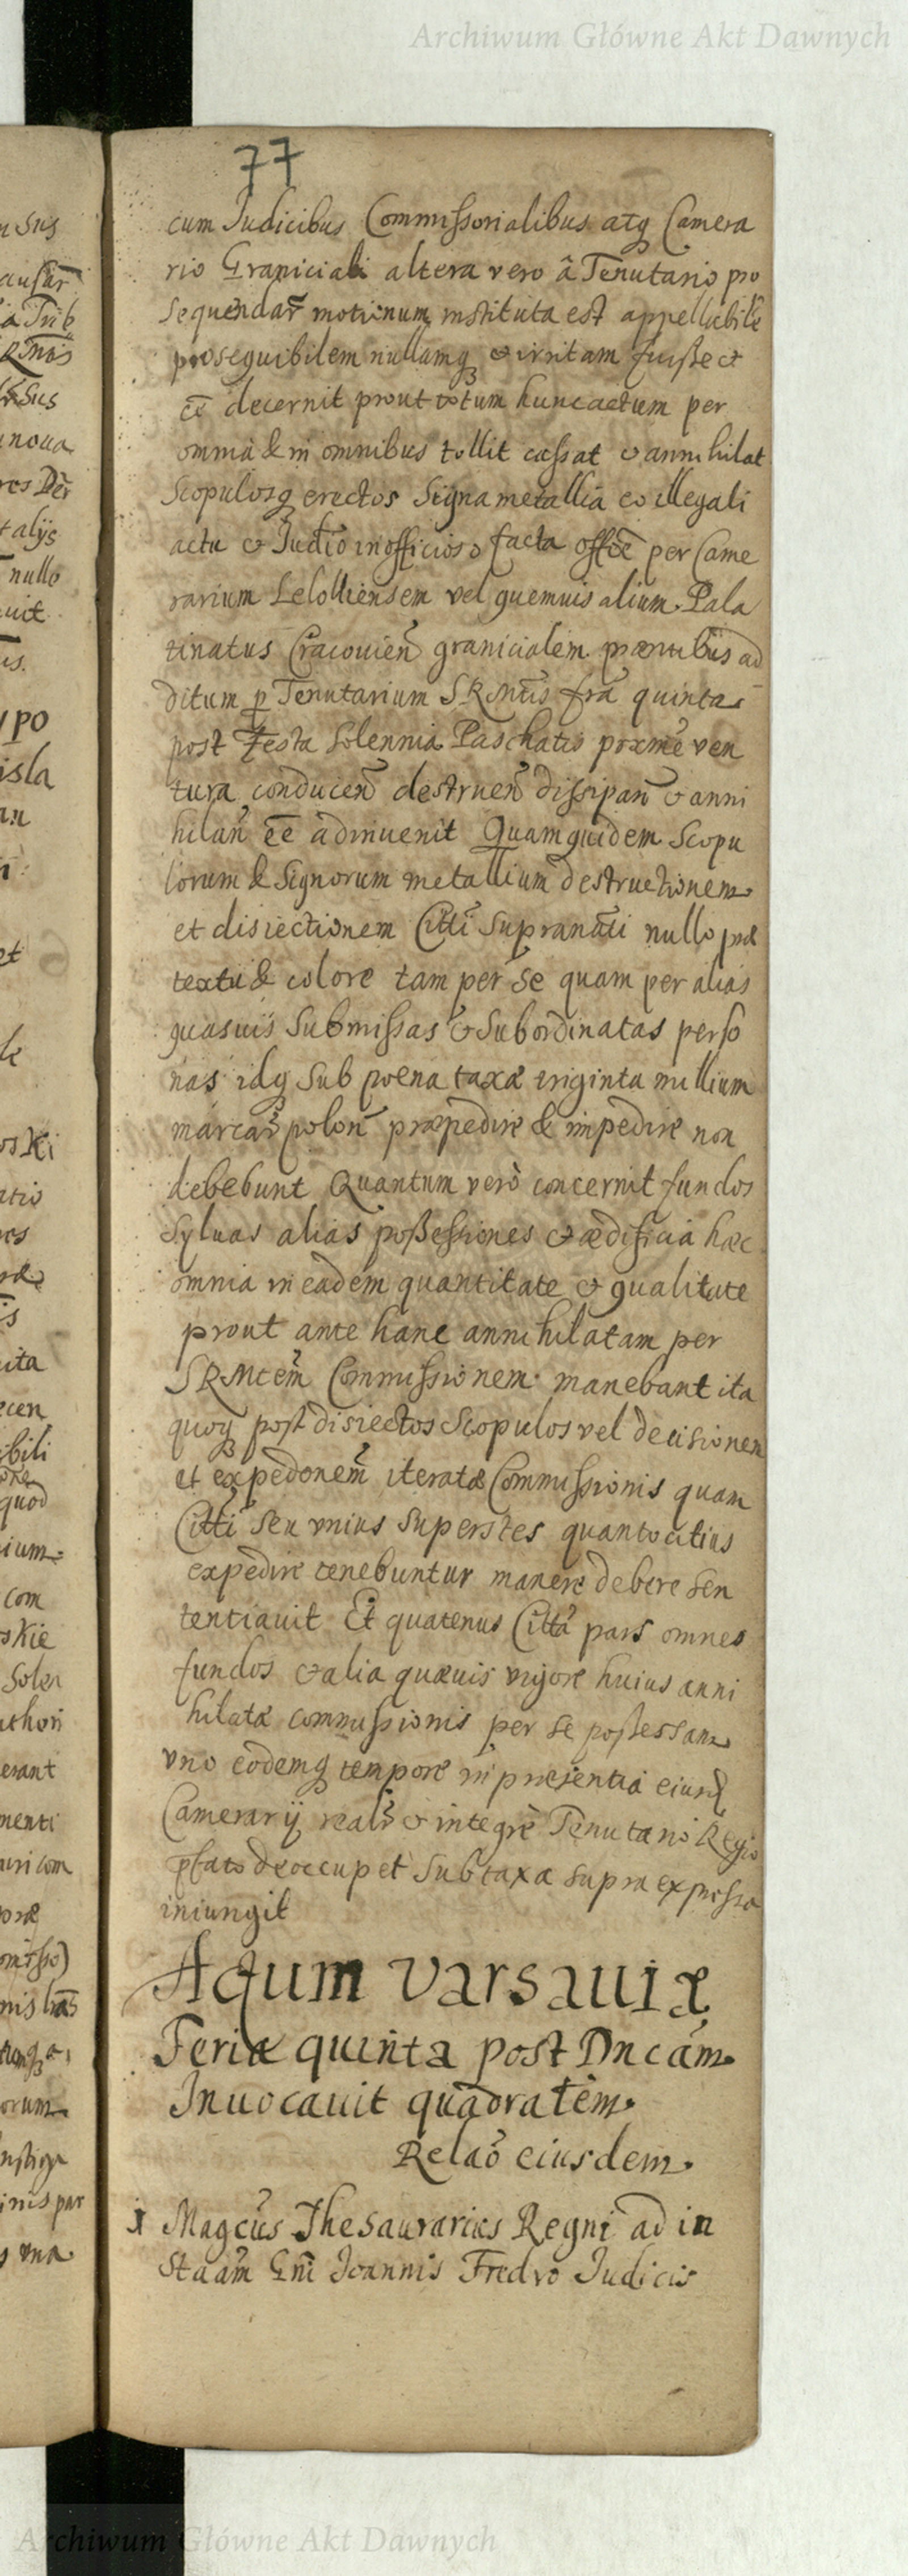 Archiwum Główne Akt Dawnych
77
cum Judicibus Commissorialibus atq Camera
rio Graniciali altera vero â Tenutario pro
sequendar motionum instituta est appellabile
prosequibilem nullamq & irritam fuisse et
eē decernit prout totum hunc actum per
omnia & in omnibus tollit cassat & annihilat
Scopulosq erectos Signa metallia eo illegali
actu & Judio inofficioso facta officē per Came
rarium Lelouiensem vel quemuis alium Pala
tinatus Cracouien granicialem præntibus ad
ditum p Tenutarium SRMtis fra quintas
post Festa Solennia Paschatis proxime ven
tura conducen destruen dissipan & anni
hilan eē adinuenit Quamquidem Scopu
lorum & Signorum metallium destructionem
et disiectionem Citti Supranoti nullo præ
textu & colore tam per Se quam per alias
quasuis Submissas & Subordinatas perso
nas idq Sub poena taxæ triginta millium
marcar polon præpedire & impedire non
debebunt Quantum vero concernit fundos
Syluas alias possessiones & ædificia hæc
omnia in eadem quantitate & qualitate
prout ante hanc annihilatam per
SRMtem Commissionem manebant ita
quoq post disiectos Scopulos vel decisionem
et expedonem iteratæ Commissionis quam
Citti Seu vnius Superstes quantocitius
expedire tenebuntur manere debere Sen
tentiauit Et quatenus Citta pars omnes
fundos & alia quæuis vigore huius anni
hilatæ commissionis per se possessam
vno eodemq tempore in præsentia eiusd
Camerarij realr & integre Tenutario Regio
pfato deoccupet Sub taxa supra expressa
iniungit
Actum Varsauiæ
Feria quinta post Dncam
Inuocauit quadratem
Relao eiusdem
1 Magcus Thesaurarius Regni ad in
staam Gni Joannis Fredro Judicis
Archiwum Główne Akt Dawnych